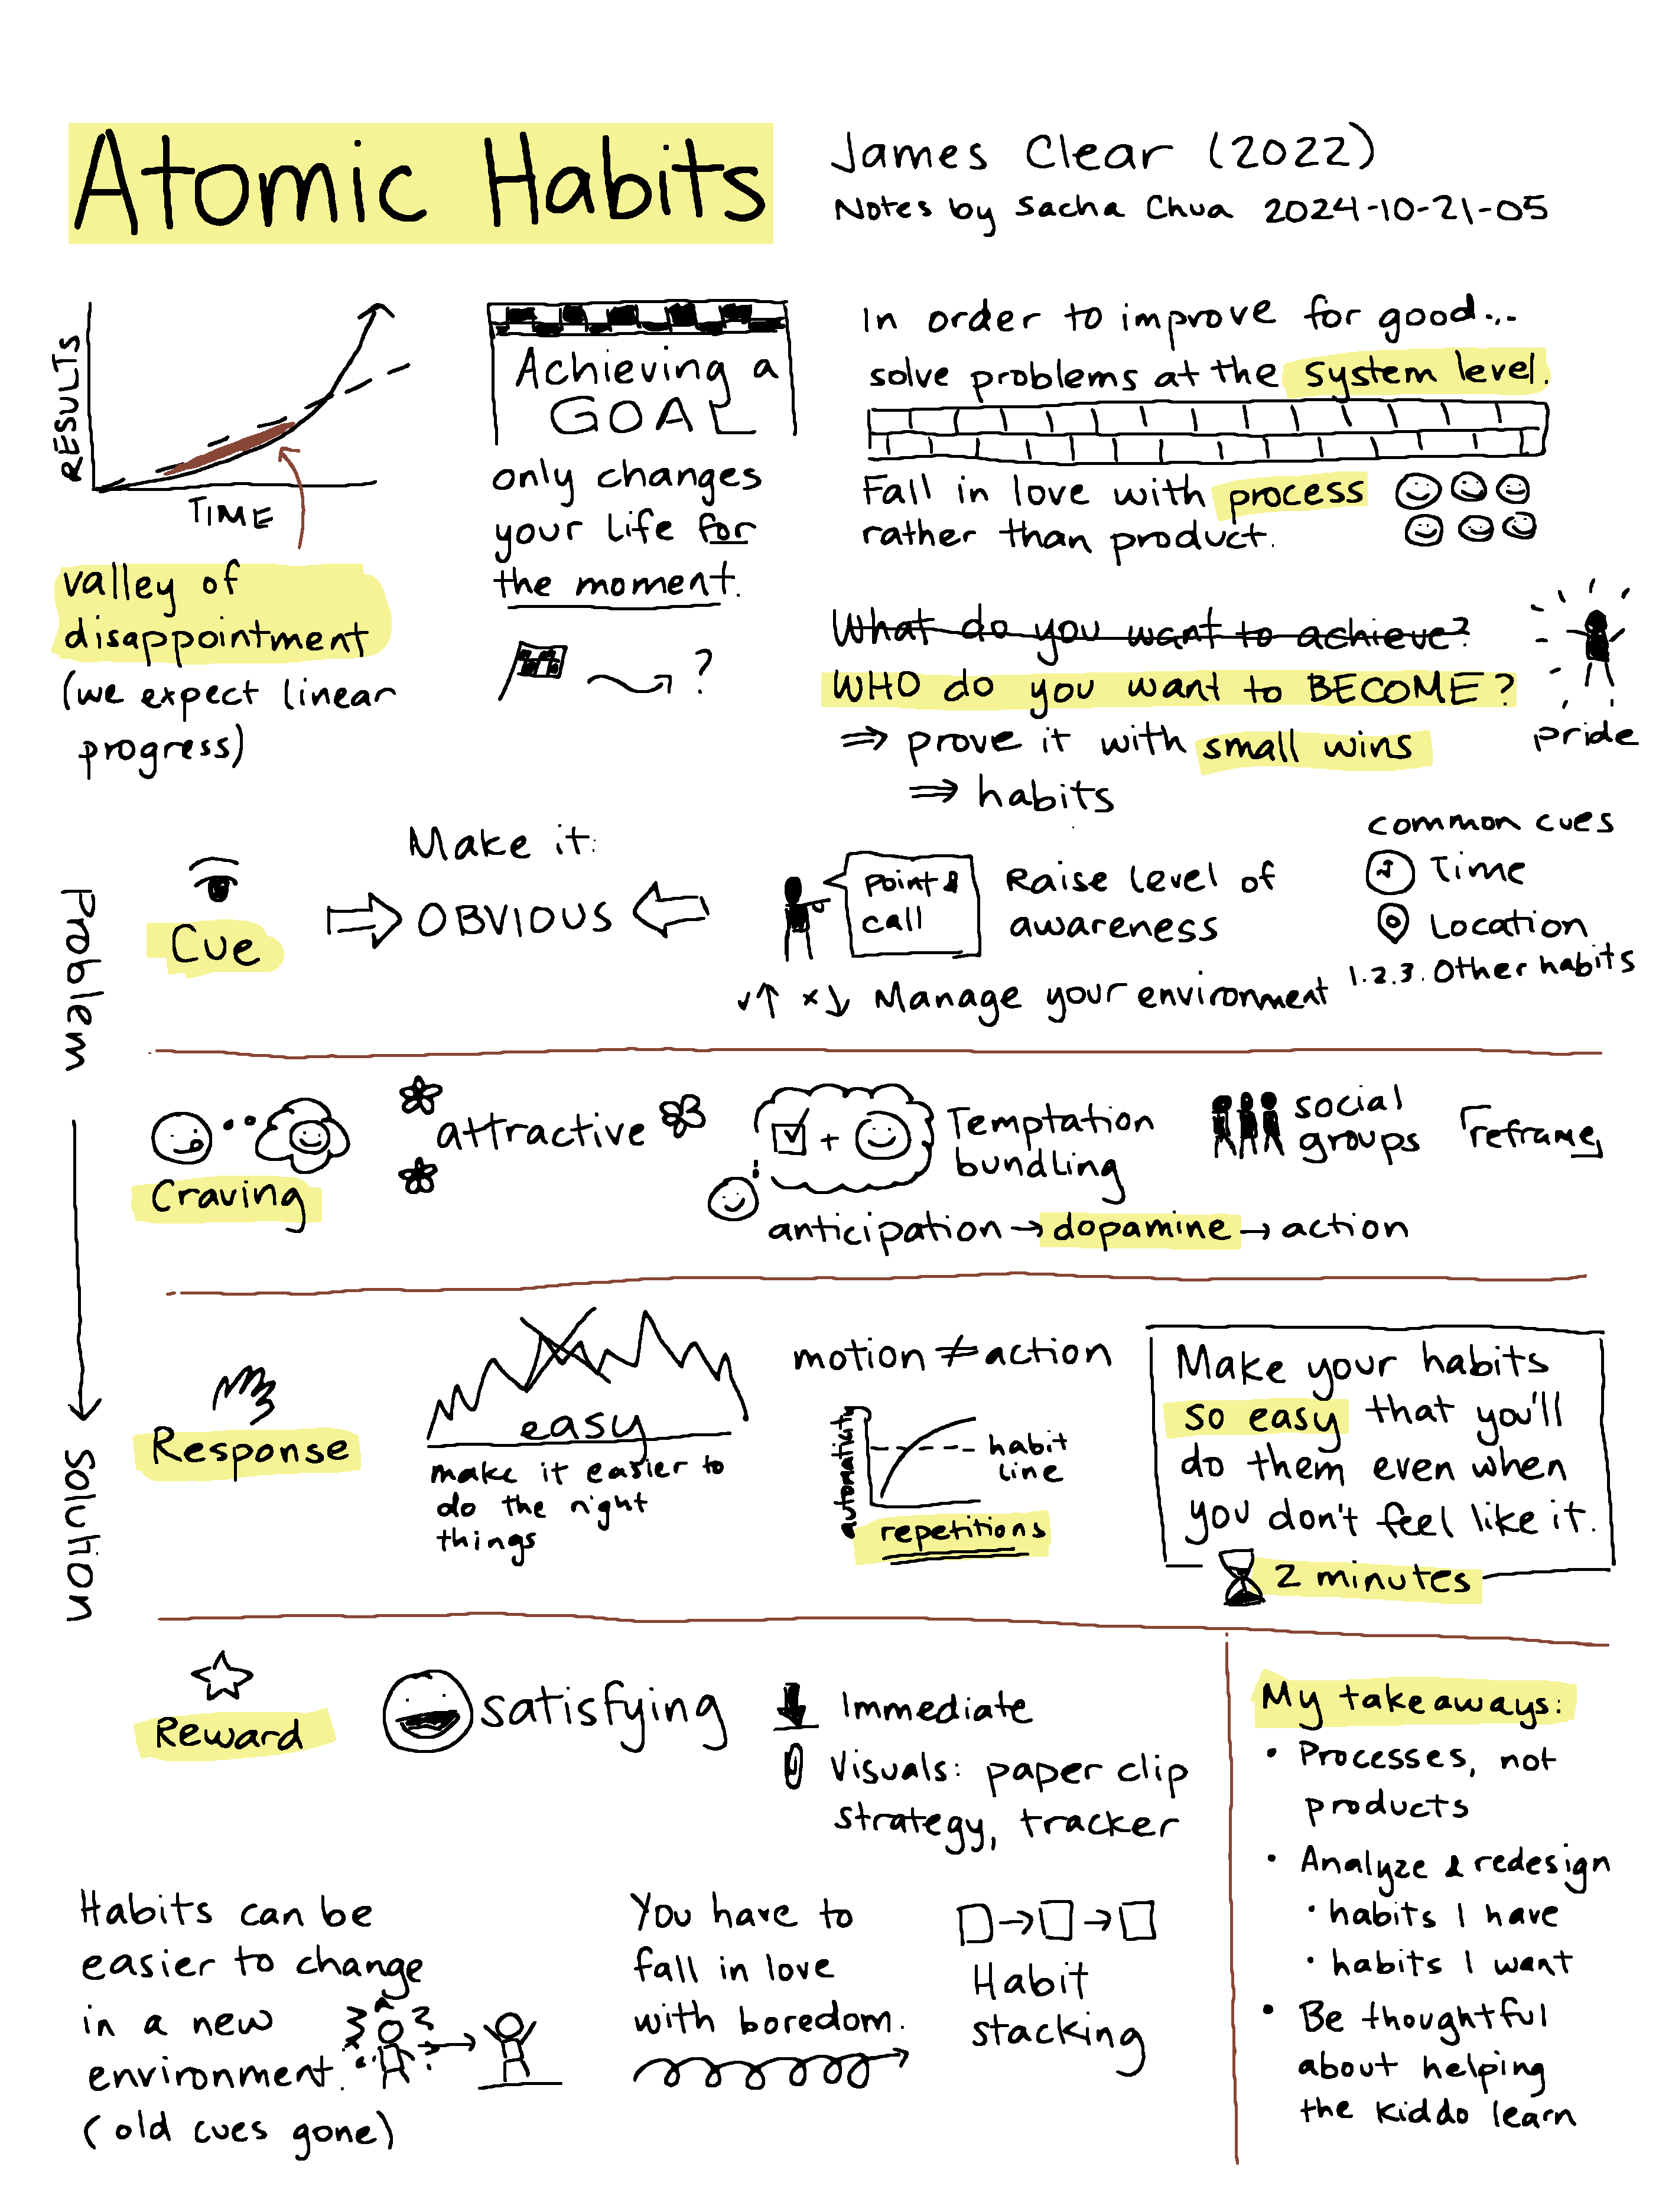 Atomic Habits
James Clear (2022)
Notes by Sacha Chua 2024-10-21-05
RESULTS
TIME
valley of
disappointment
(we expect linear
progress)
Achieving a
GOAL
only changes
your life for
the moment.
?
In order to improve for good...
solve problems at the system level.
Fall in love with process
rather than product.
What do you want to achieve?
WHO do you want to BECOME?
⇒ prove it with small wins
⇒ habits
pride
Problem
solution
Cue
Make it:
OBVIOUS
Point &
call
Raise level of
awareness
✓↑ ×↓ Manage your environment
common cues
Time
Location
1.2.3. Other habits
Craving
attractive
+
Temptation
bundling
anticipation → dopamine → action
social
groups
reframe
Response
easy
make it easier to
do the right
things
motion ≠ action
automaticity
habit
line
repetitions
Make your habits
so easy that you'll
do them even when
you don't feel like it.
2 minutes
Reward
satisfying
Immediate
Visuals: paper clip
strategy, tracker
Habits can be
easier to change
in a new
environment.
(old cues gone)
You have to
fall in love
with boredom.
Habit
stacking
My takeaways:
• Processes, not
products
• Analyze & redesign
• habits I have
• habits I want
• Be thoughtful
about helping
the kiddo learn